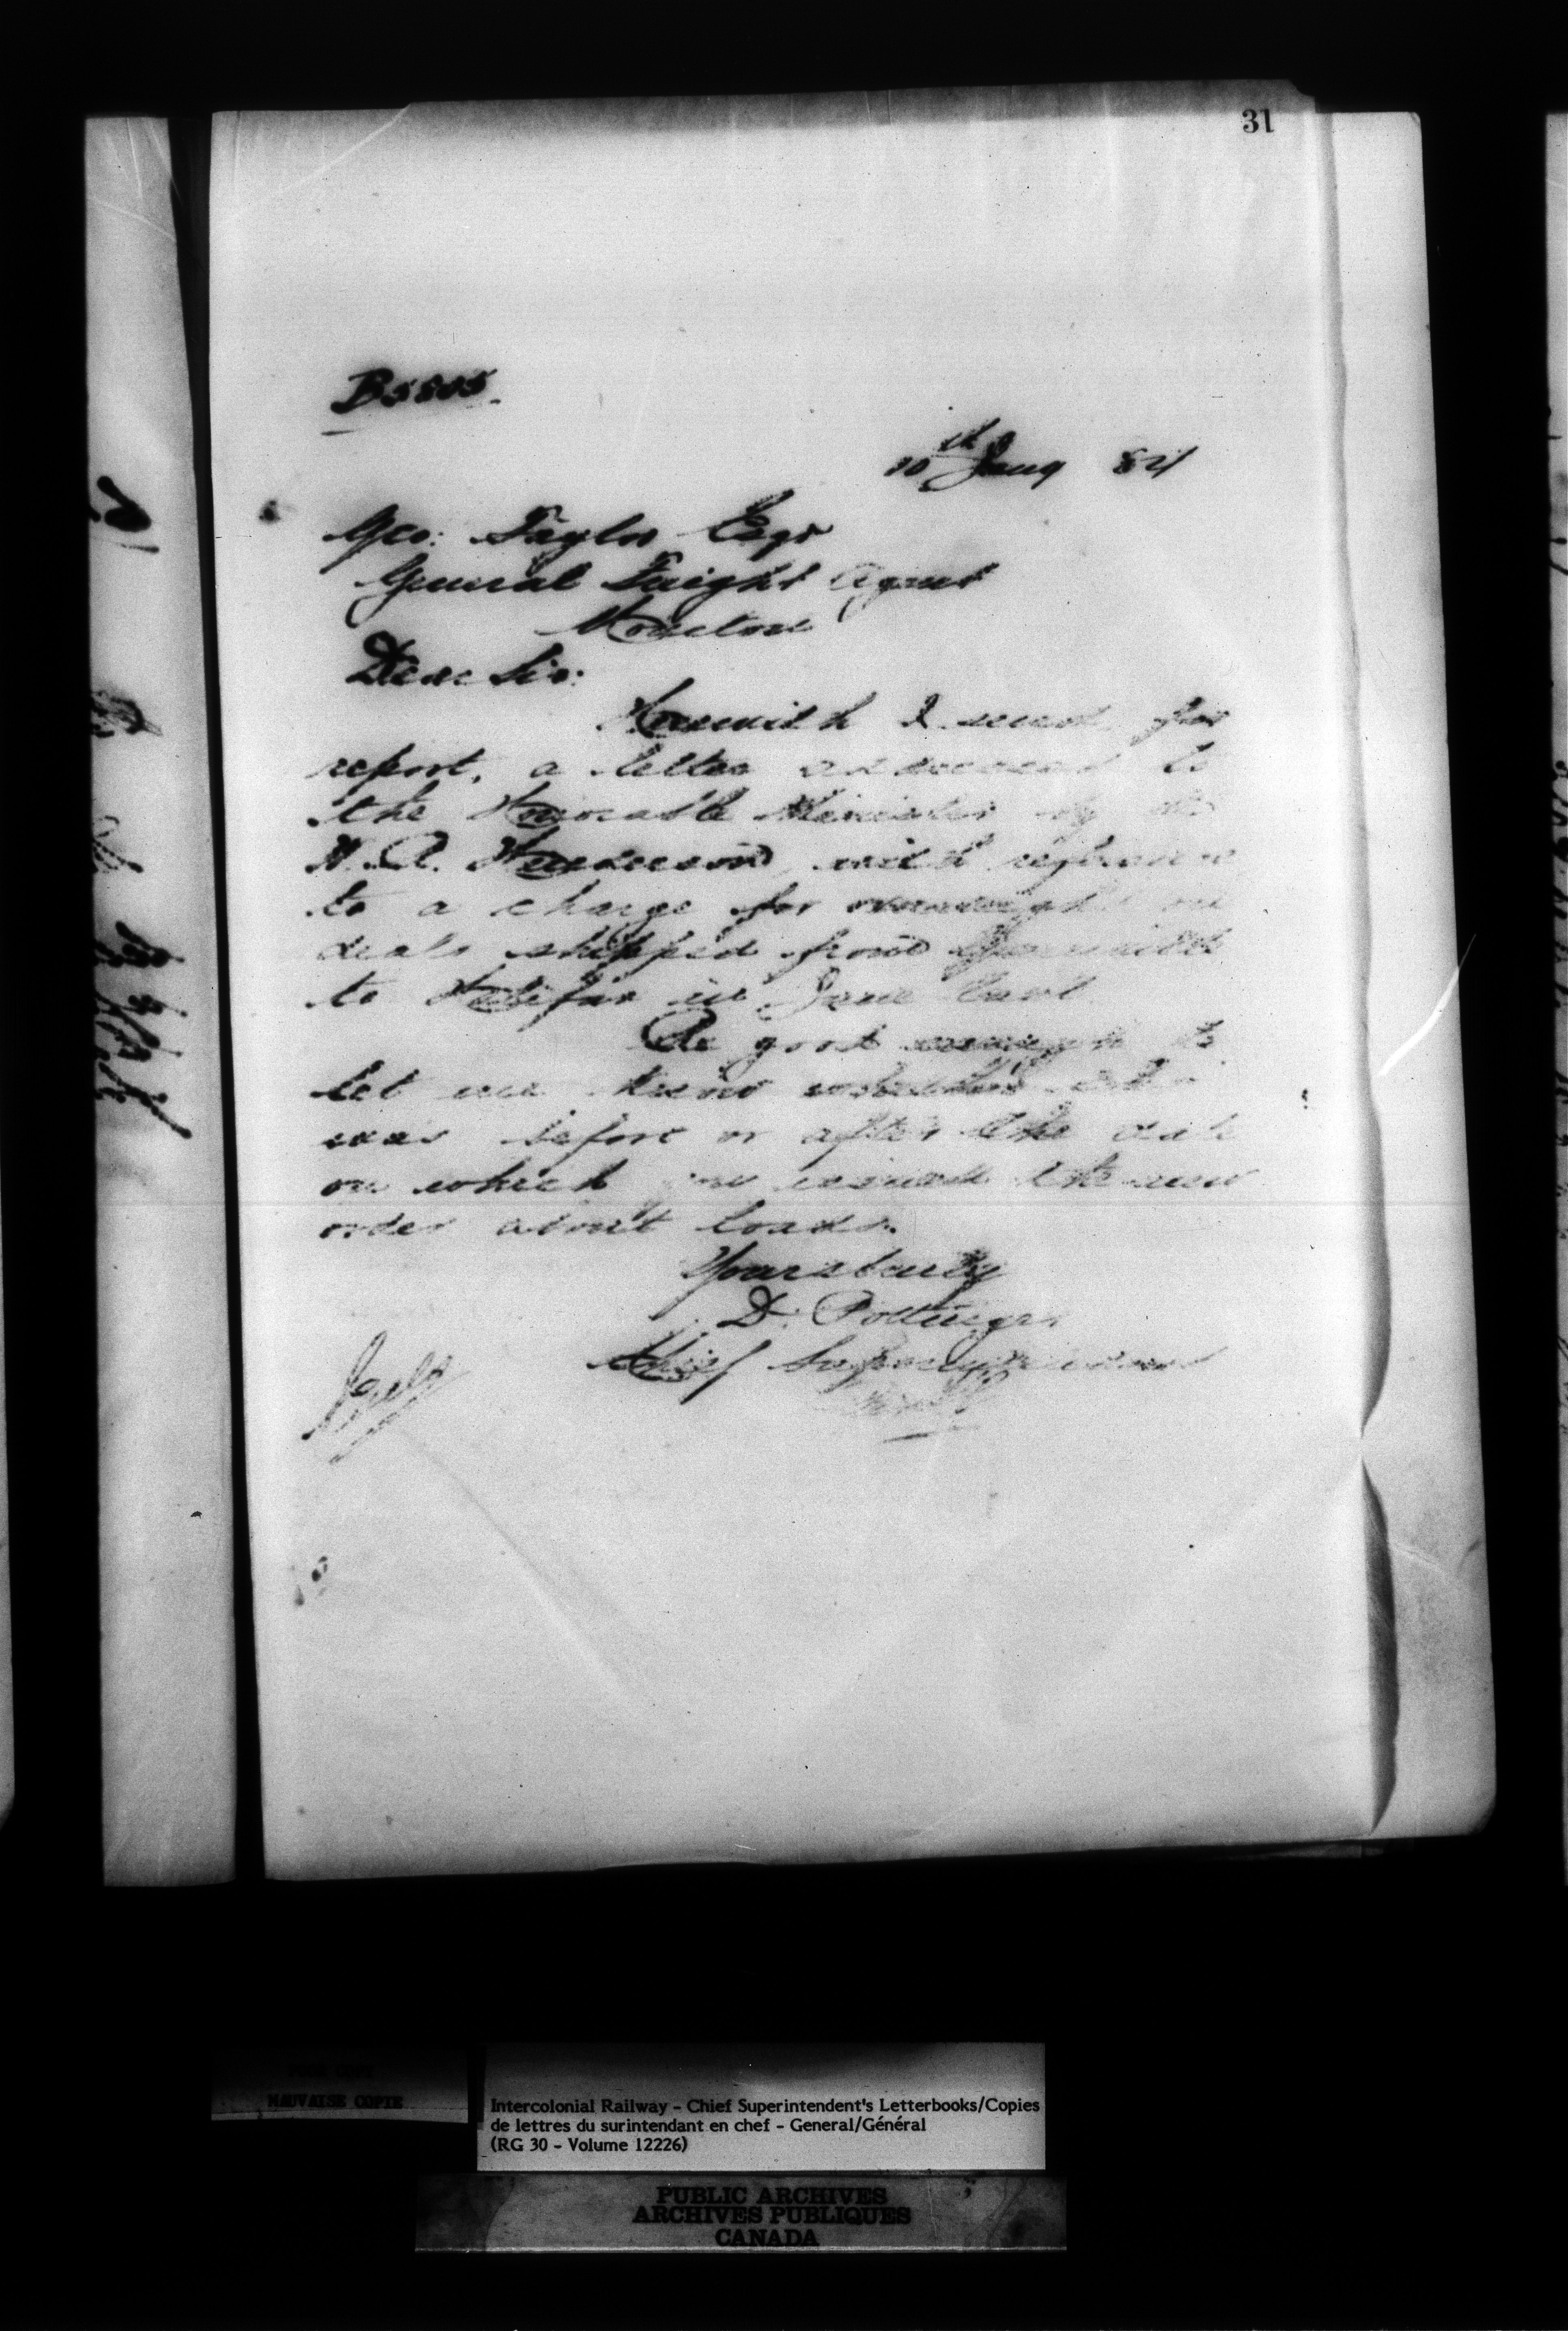 31
B5805
10th Jany 84
Geo: Taylor Esqr
General Freight Agent
Moncton
Dear Sir:
Herewith I send for
report, a letter addressed to
the Honorable Minister by
W. A. Henderson with reference
to a charge for overweight on
deals shipped from
to Halifax in June last
Be good enough to
let me know whether this
was before or after the date
on which you issued the new
order about loads.
Yours truly
D. Pottinger
Chief Superintendent
MAUVAISE COPIE
Intercolonial Railway - Chief Superintendent's Letterbooks/Copies
de lettres du surintendant en chef - General/Général
(RG 30 - Volume 12226)
PUBLIC ARCHIVES
ARCHIVES PUBLIQUES
CANADA